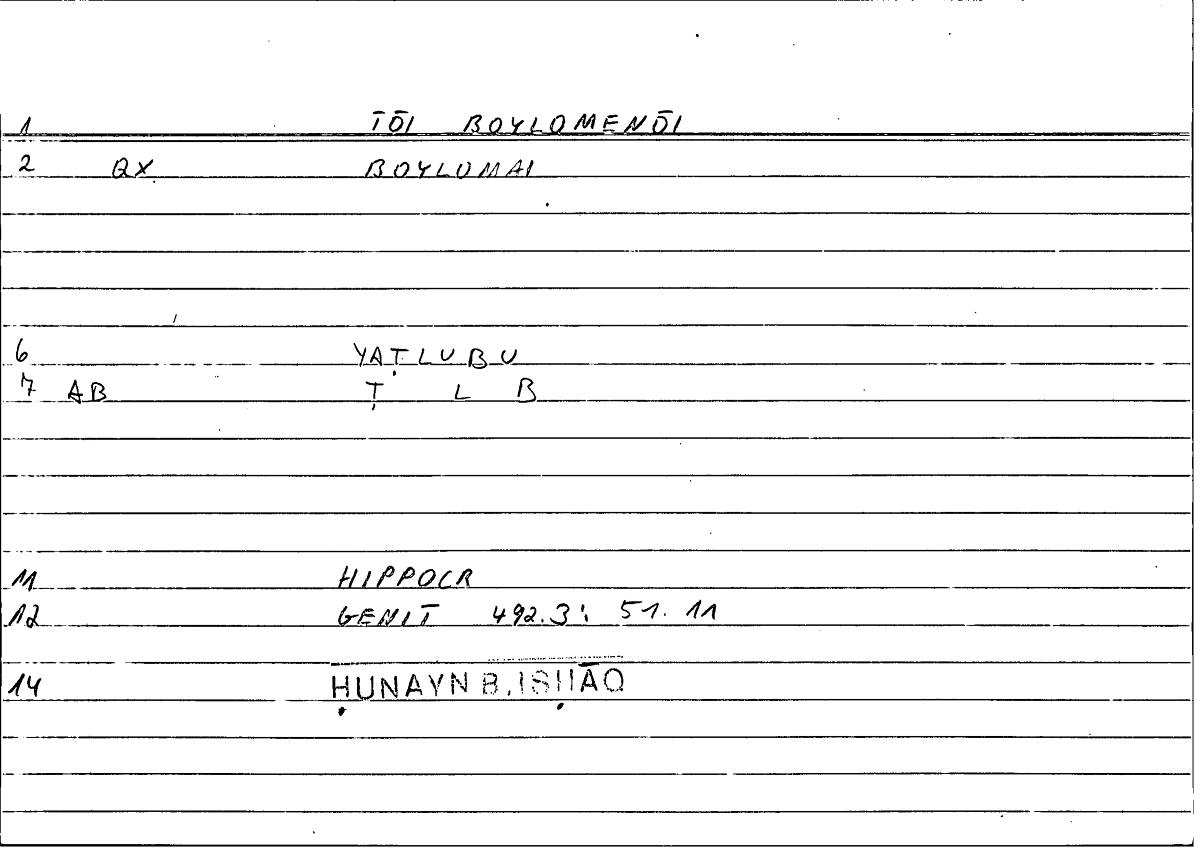 1 TŌI BOYLOMENŌI
2 QX BOYLOMAI
6 YAṬLUBU
7 AB Ṭ L B
11 HIPPOCR
12 GENIT 492.3: 51.11
14 ḤUNAYN B.ISḤĀQ